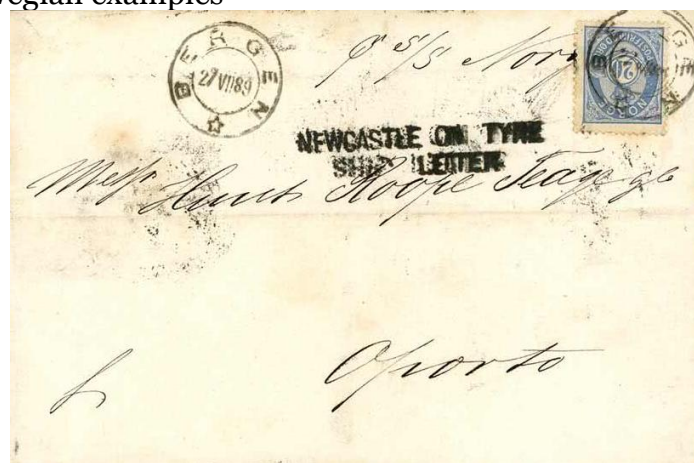 wegian examples
BERGEN
27 VII 89
p s/s Norg
20
NEWCASTLE ON TYNE
SHIP LETTER
Messrs Hunt Roope Teage & Co
Oporto